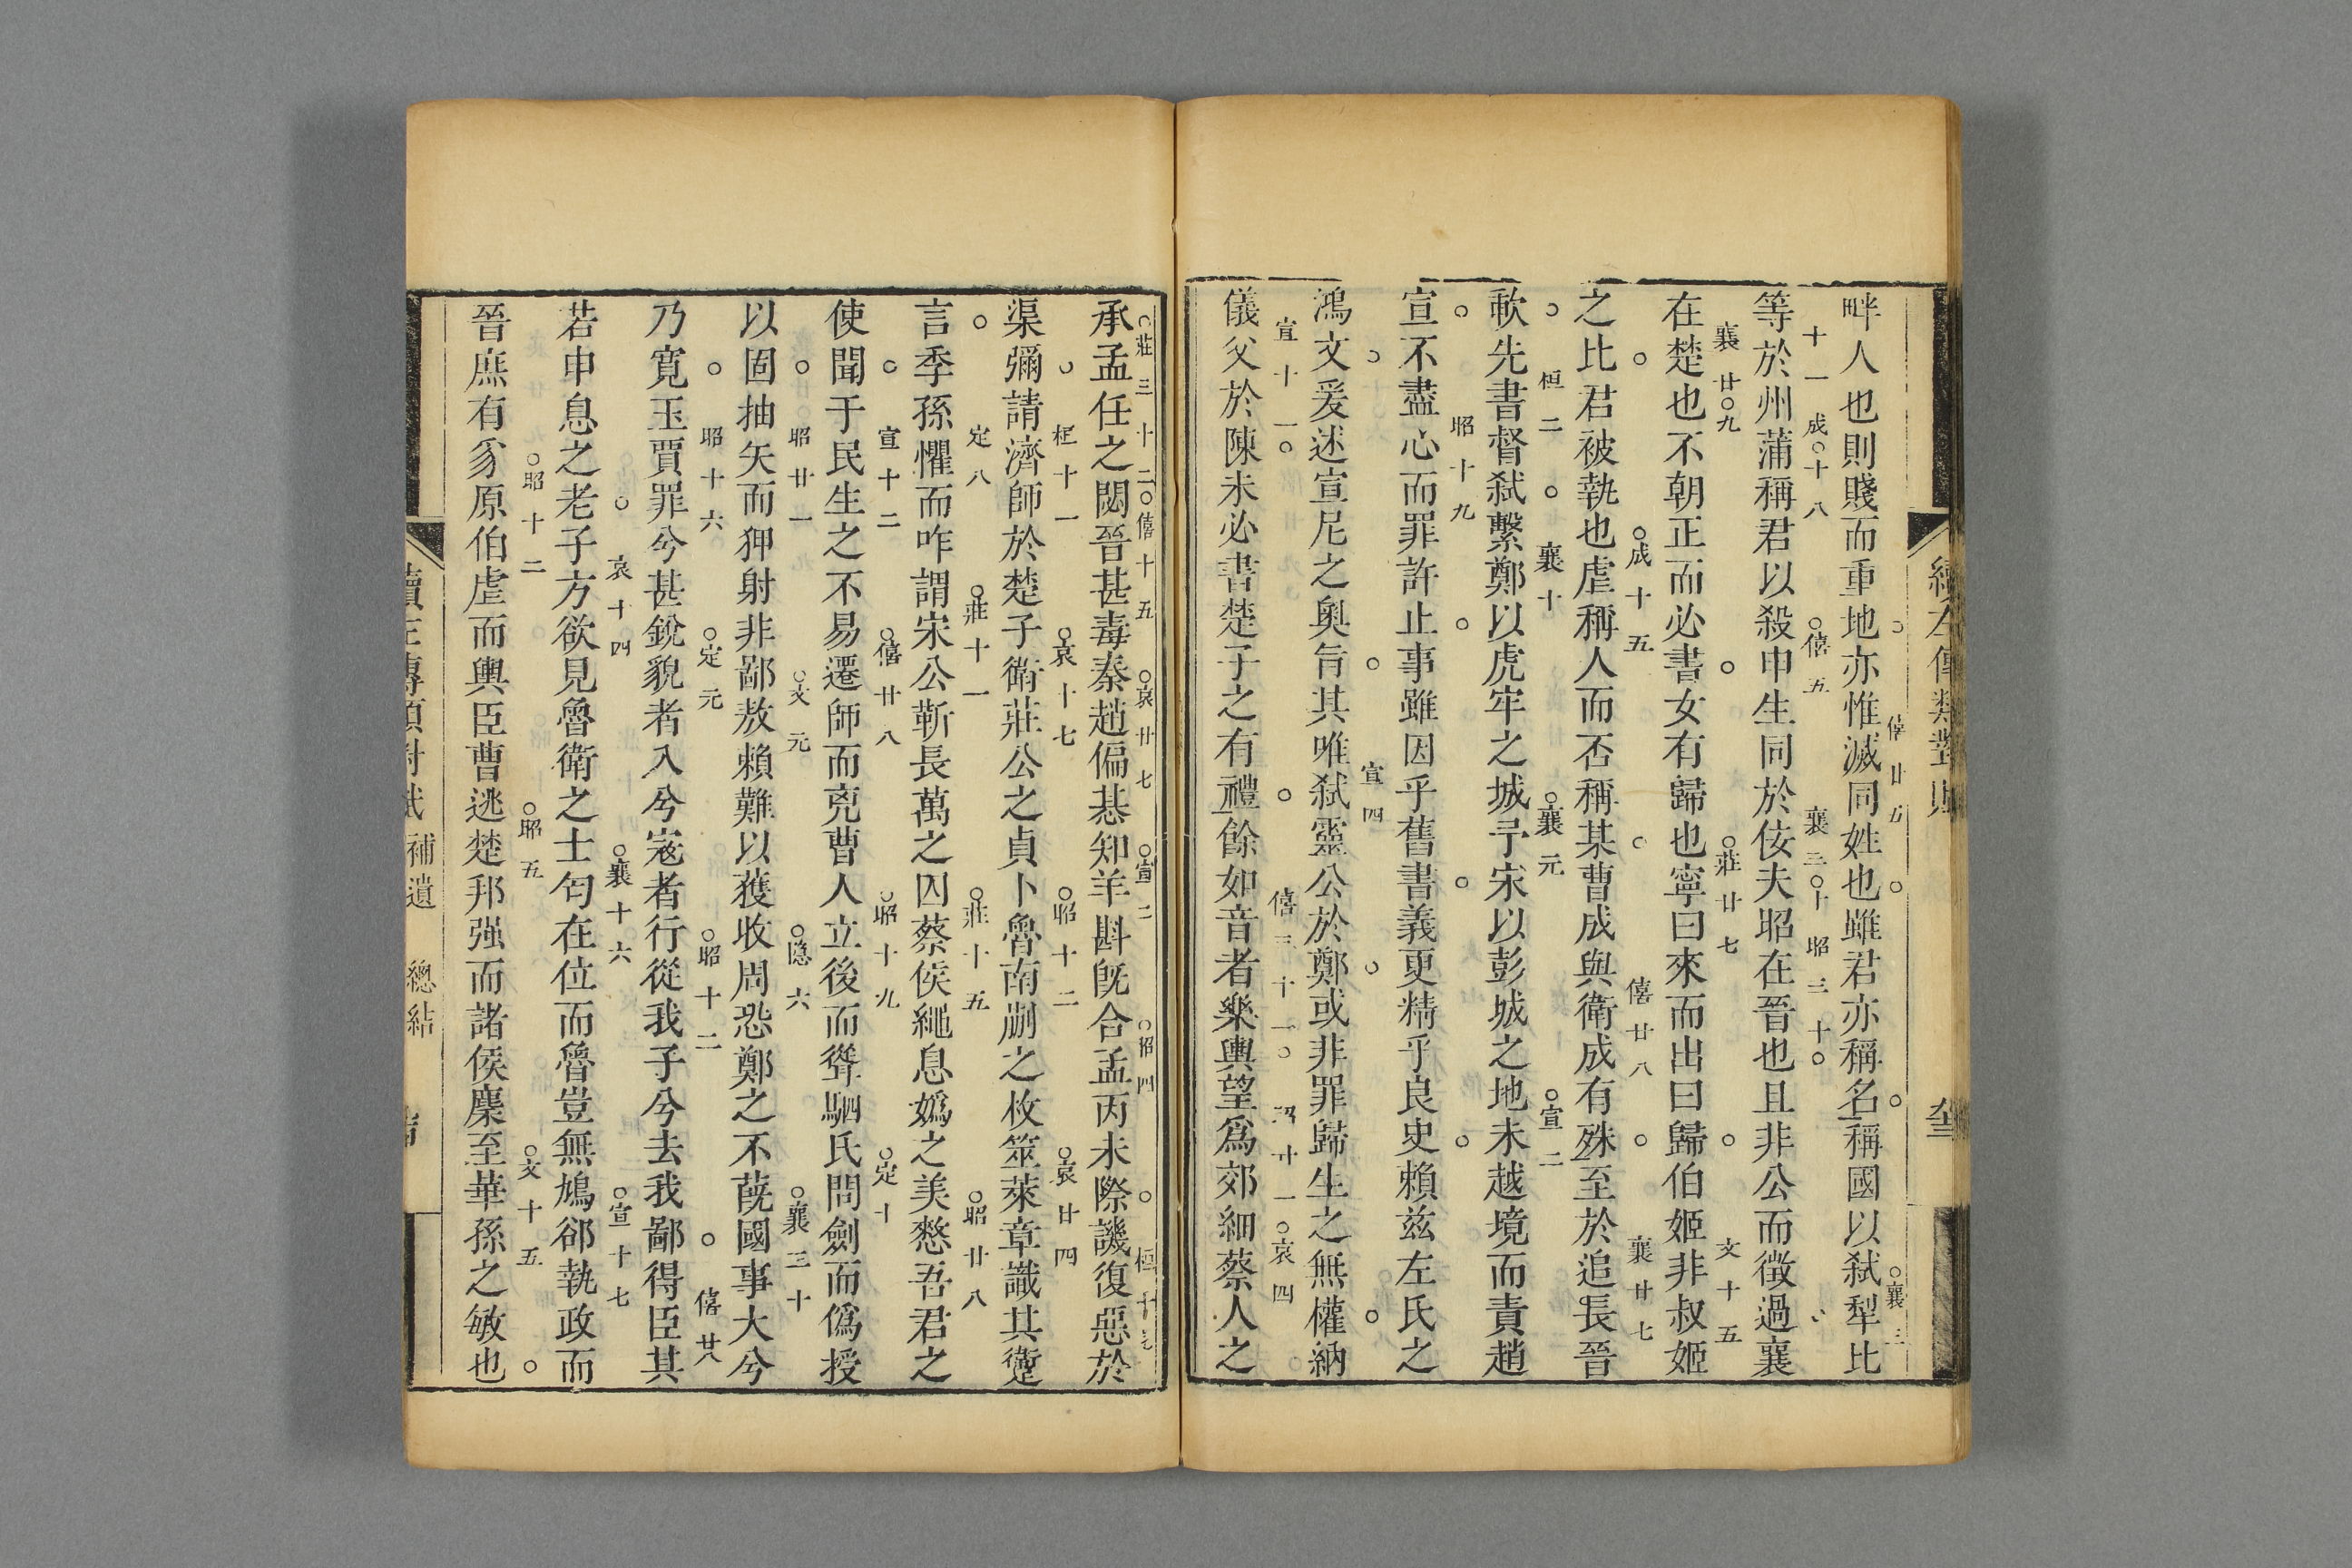 畔人也則賤而重地亦惟滅同姓也雖君亦稱名稱國以弒犁比
僖廿五
襄三
等於州蒲稱君以殺申生同於佞夫昭在晉也且非公而徵過襄
十一
成十八
僖五
襄三十
昭三十
在楚也不朝正而必書女有歸也寧曰來而出曰歸伯姬非叔姬
襄廿九
莊廿七
文十五
之比君被執也虐稱人而否稱某曹成與衛成有殊至於追長晉
成十五
僖廿八
襄廿七
歃先書督弒繫鄭以虎牢之城予宋以彭城之地未越境而責趙
桓二
襄十
襄元
宣二
宣不盡心而罪許止事雖因乎舊書義更精乎良史賴兹左氏之
昭十九
鴻文爰述宣尼之奥旨其唯弒靈公於鄭或非罪歸生之無權納
宣四
儀父於陳未必書楚子之有禮餘如音者樂輿望爲郊細蔡人之
宣十一
僖三十一
昭廿一
哀四
承孟任之閟晉甚毒秦趙偏惎知羊斟旣合孟丙未際譏復惡於
莊三十二
僖十五
哀廿七
宣二
昭四
渠彌請濟師於楚子衛莊公之貞卜魯南蒯之枚筮萊章讖其躗
桓十一
哀十七
昭十二
哀廿四
言季孫懼而咋謂宋公靳長萬之囚蔡侯繩息嬀之美憗吾君之
定八
莊十一
莊十五
昭廿八
使聞于民生之不易遷師而兇曹人立後而聳駟氏問劍而僞授
宣十二
僖廿八
昭十九
定十
以固抽矢而狎射非鄙敖賴難以獲收周恐鄭之不蔇國事大兮
昭廿一
文元
隱六
襄三十
乃寬玉賈罪兮甚銳貌者入兮寇者行從我子兮去我鄙得臣其
昭十六
定元
昭十二
僖廿八
若申息之老子方欲見魯衛之士匄在位而魯豈無鳩郤執政而
哀十四
襄十六
宣十七
晉庶有豸原伯虐而輿臣曹逃楚邦强而諸侯麇至華孫之敏也
昭十二
昭五
文十五
補遺 總結